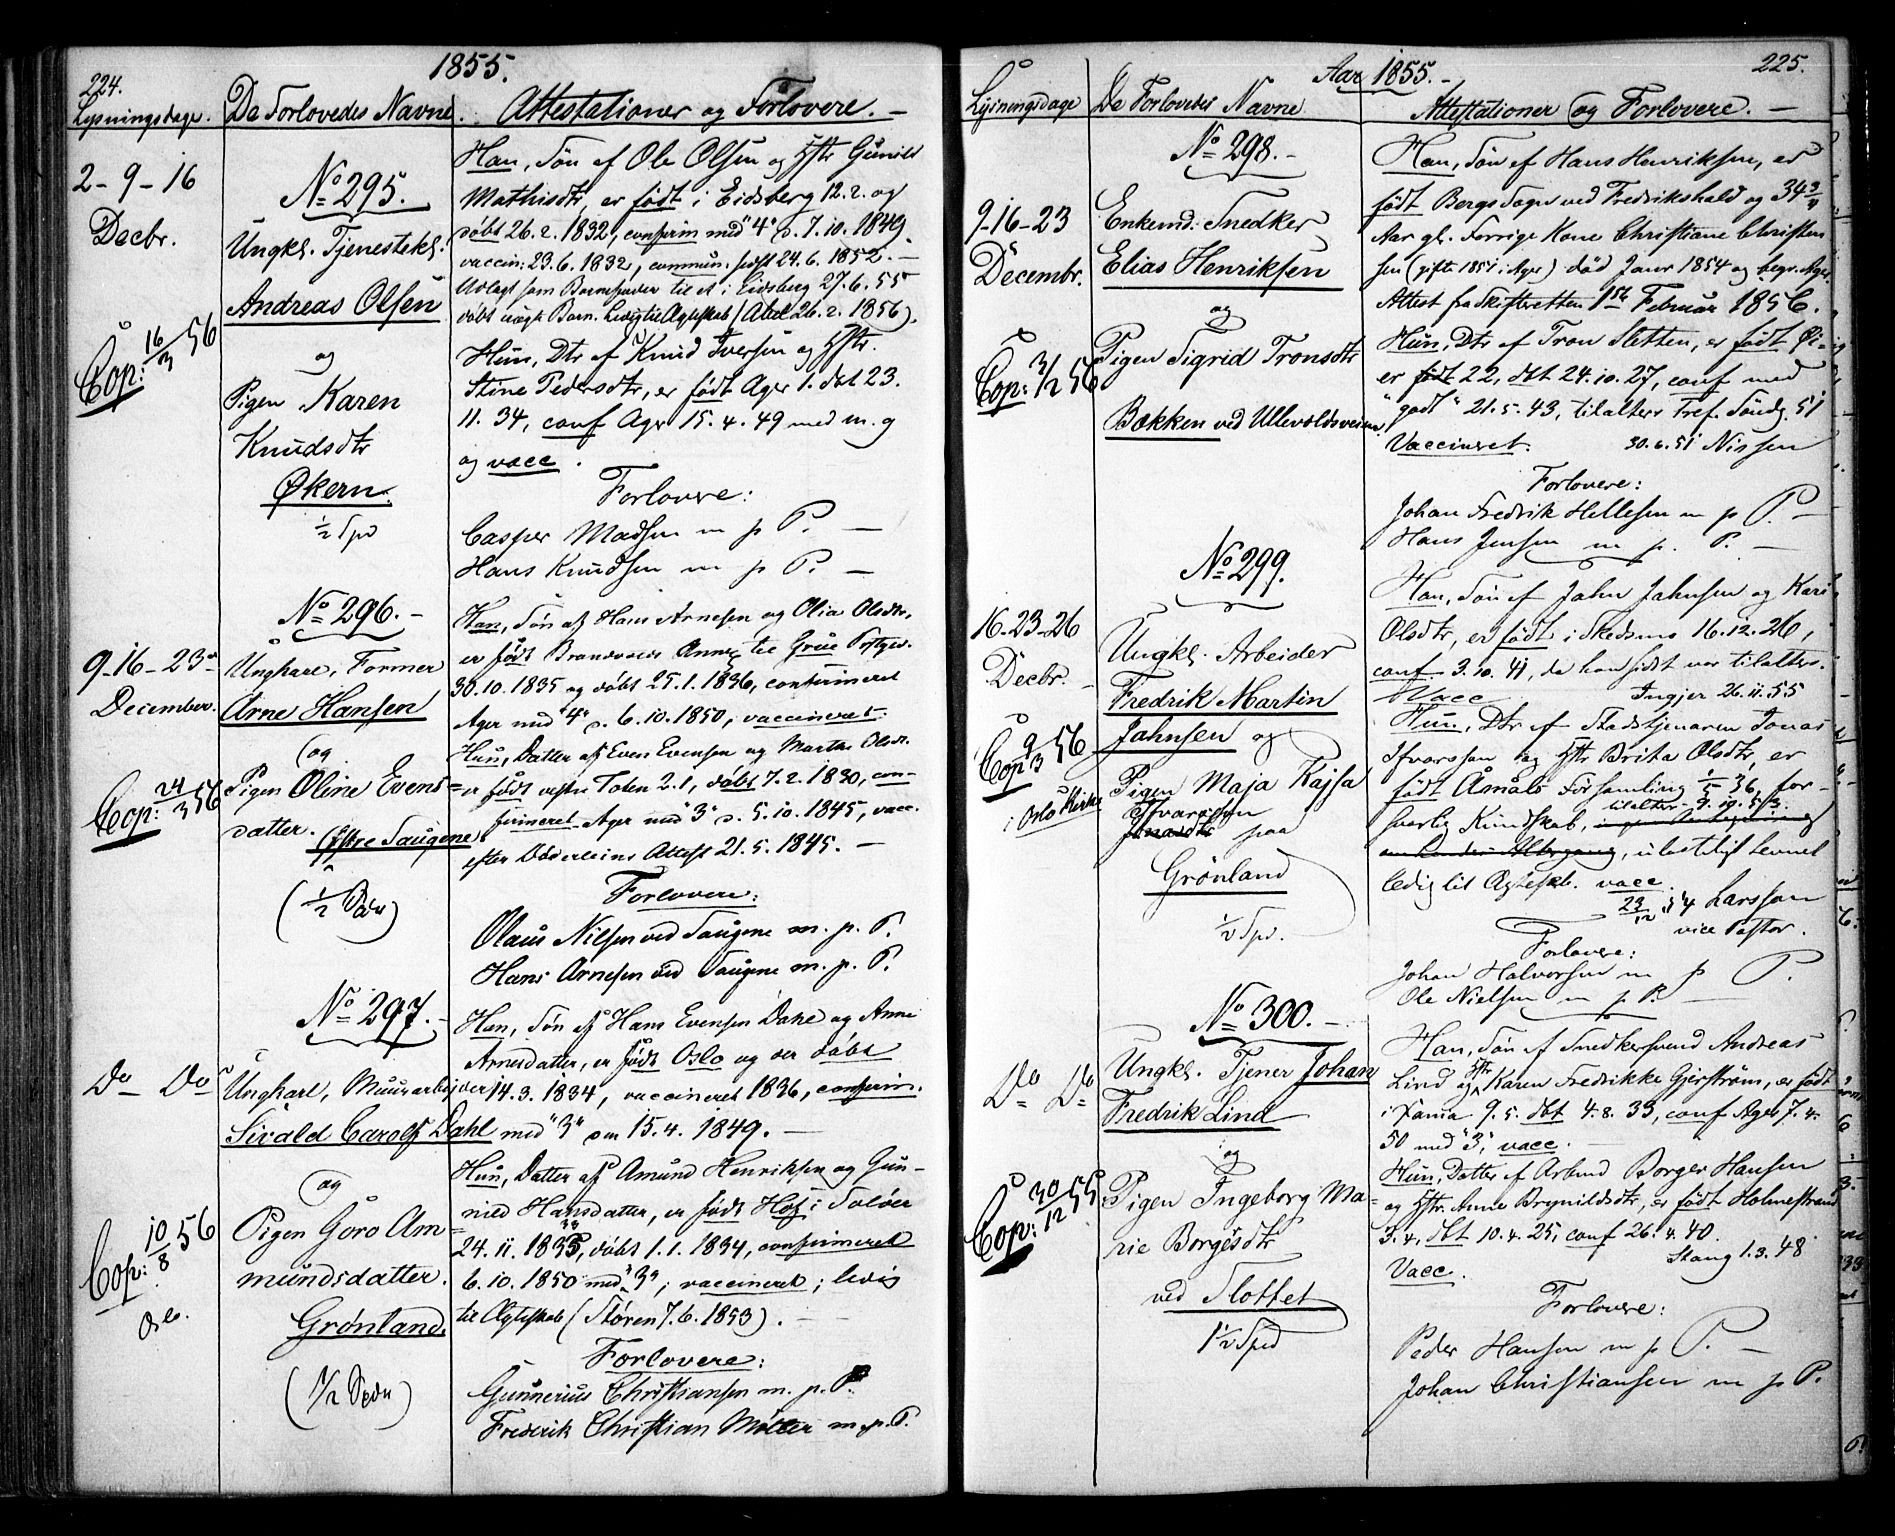 224.
1855.
Lysningsdage.
De Forlovedes Navne.
Attestationer og Forlovere. —
2 - 9 - 16
Decbr.
No 295.
Ungkl. Tjenestekl.
Andreas Olsen
Cop: 16/3 56
og
Pigen Karen
Knudsdtr
Økern.
1/2 Spd
Han, Søn af Ole Olsen og Hstr Gunild
Mathisdtr, er født i Eidsberg 12.2. og
døbt 26.2. 1832, confirm med "4" d. 7.10. 1849.
vaccin: 23.6.1832, commun. sidst 24.6.1852. —
Udlagt som Barnefader til et i Eidsberg 27.6.55
døbt uægte Barn. Ledig til Ægteskab (Abel 26.2.1856).
Hun, Dtr af Knud Iversen og Hstr.
Stine Pedersdtr, er født Ager 1. dbt 23.
11. 34, conf Ager 15.4.49 med m.g
og vacc.
Forlovere:
Casper Madsen m p P. —
Hans Knudsen m p P. —
No 296. -
9 - 16 - 23
December.
Ungkarl, Former
Arne Hansen
og
Cop: 24/3 56
Pigen Oline Evens=
datter.
Østre Saugene
(1/2 Spdr)
Han, Søn af Hans Arnesen og Olia Olsdtr,
er født Brandvolds Annex til Grue Præstgjed.
30.10.1835 og døbt 25.1.1836, confirmeret
Ager med "4" d. 6.10.1850, vaccineret.
Hun, Datter af Even Evensen og Marthe Olsdt.
er født vestre Toten 2.1, døbt 7.2.1830, con-
firmeret Ager med "3" d. 5.10.1845, vacc.
efter Døderleins Attest 21.5.1845. —
Forlovere:
Olaus Nilsen ved Saugene m. p. P.
Hans Arnesen ved Saugene m. p. P.
No 297. -
Do Do
Ungkarl, Muurarbeider
Sivald Carolf Dahl
og
Cop: 10/8 56
Oslo.
Pigen Goro Am=
mundsdatter.
Grønland.
(1/2 Spdr)
Han, Søn af Hans Evensen Dahl og Anne
Arnesdatter, er født Oslo og der døbt
14.3.1834, vaccineret 1836, confirm.
med "3" den 15.4.1849. —
Hun, Datter af Amund Henriksen og Gun-
nild Hansdatter, er født Hof i Soløer
24.11.1833, døbt 1.1.1834, confirmeret
6.10.1850 med "3", vaccineret; ledig
til Ægteskab (Støren 7.6.1853).
Forlovere:
Gunnerius Christiansen m. p. P.
Frederik Christian Møller m. p. P.
Aar 1855. -
225.
Lysningsdage
De Forlovedes Navne
Attestationer og Forlovere. —
No 298. -
9-16-23
Decembr.
Enkemd: Snedker
Elias Henriksen
og
Cop: 3/2 56
Pigen Sigrid Tronsdtr
Bækken ved Ullevoldsveien
Han, Søn af Hans Henriksen, er
født Bergs Sogn ved Fredrikshald og 34 3/4
Aar gl. Forrige Kone Christiane Christen
sen (gift 1851 i Ager) død Janr 1854 og begr. Ager
Attest fra Skifteretten 1ste Februar 1856.
Hun, Dtr af Tron Sletten, er født
er født 22, dbt 24.10.27, conf med
"godt" 21.5.43, tilalters Tref. Søndg. 51
Vaccineret. 30.6.51 Nissen
Forlovere:
Johan Fredrik Hellesen m p P. —
Hans Jensen m p. P. —
No 299.
16-23-26
Decbr.
Ungkl. Arbeider
Fredrik Martin
Jahnsen og
Cop 9/3 56
i Oslo Kirke
Pigen Maja Kajsa
Ifvarsson
Jonasdtr paa
Grønland
1/2 Spd.
Han, Søn af Jahn Jahnsen og Kari
Olsdtr, er født i Skedsmo 16.12.26,
conf 3.10.41, da han sidst var tilalters.
Vacc Ingjer 26.11.55
Hun, Dtr af Stadstjenaren Jonas
Ifvarsson og Hstr Brita Olsdtr, er
født Åsnåls Församling 1/5 36, for-
svarlig Kundskab,
tilalters
, ulasteligt levnet
ledig til Ægteskb. vacc.
23/12 54 Larsson
vice Pastor.
Forlovere:
Johan Halvorsen m p P.
Ole Nielsen m p P. —
No 300. -
Do Do
Ungkl. Tjener Johan
Fredrik Lind
og
Cop: 30/12 55
Pigen Ingeborg Ma=
rie Borgesdtr
ved Slottet
1 1/2 Spd
Han, Søn af Snedkersvend Andreas
Lind og Hstr Karen Fredrikke Gjerstrøm, er født
i Xania 9.5. dbt 4.8.33, conf Ager 7.4.
50 med "3", vacc. —
Hun, Datter af Arbmd Borger Hansen
og Hstr. Anne Brynildsdtr, er født Holmestrand
3.4, dbt 10.4.25, conf 26.4.40.
Vacc. Stang 1.3.48
Forlovere:
Peder Hansen m p P. —
Johan Christiansen m p P.